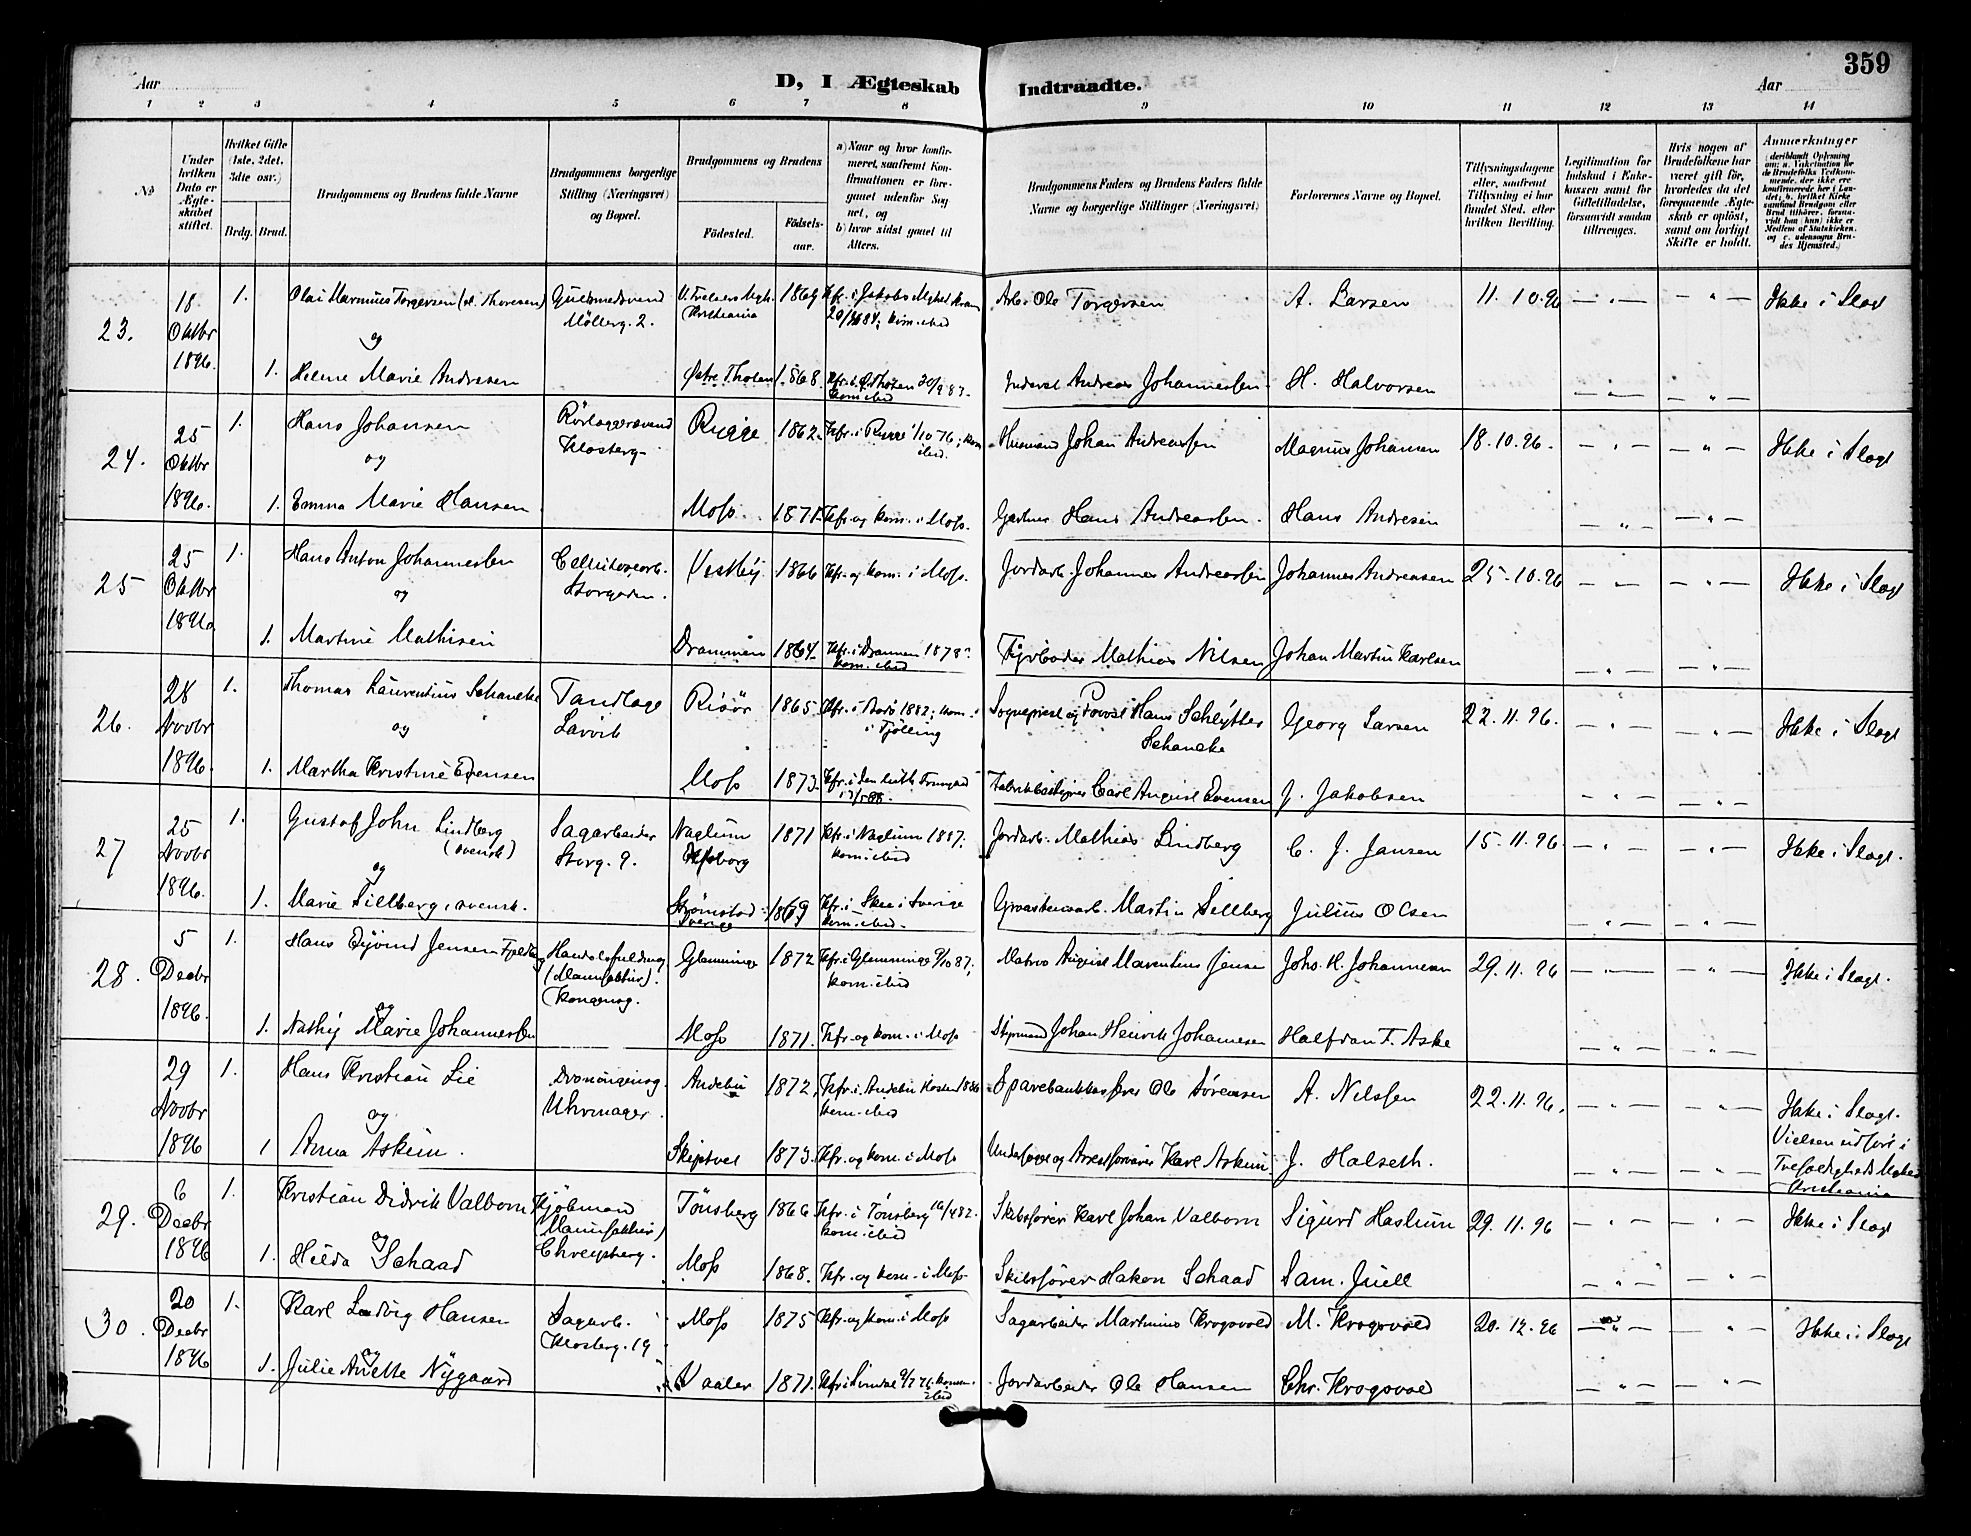 359
Aar
D, I Ægteskab Indtraadte.
Aar
1 2 3 4 5 6 7 8 9 10 11 12 13 14
No
Under hvilken Dato er Ægteskabet stiftet.
Hvilket Gifte (1ste, 2det, 3die osv.)
Brdg. Brud.
Brudgommens og Brudens fulde Navne
Brudgommens borgerlige Stilling (Næringsvei) og Bopæl.
Brudgommens og Brudens
Fødested.
Fødselsaar.
a) Naar og hvor konfirmeret, saafremt Konfirmationen er foregaaet udenfor Sognet, og
b) hvor sidst gaaet til Alters.
Brudgommens Faders og Brudens Faders fulde Navne og borgerlige Stillinger (Næringsvei)
Forlovernes Navne og Bopæl.
Tillysningsdagene eller, saafremt Tillysning ei har fundet Sted, efter hvilken Bevilling.
Legitimation for Indskud i Enkekassen samt for Giftetilladelse, forsaavidt saadan tiltrænges.
Hvis nogen af Brudefolkene har været gift før, hvorledes da det foregaaende Ægteskab er opløst, samt om lovligt Skifte er holdt.
Anmærkninger
23. 18 Oktbr 1896. 1. Olai Marinius Torgersen (el. Thoresen) Guldsmedsvend Møllerg. 2. Kristiania 1869 Arb. Ole Torgersen A. Larsen 11.10.96 Ikke i Slægt
og
1. Helene Marie Andresen Østre Thoten 1868. Inderst Andreas Johannessen H. Halvorsen
24. 25 Oktbr 1896. 1. Hans Johansen Rørlæggersvend Klosterg. Rygge 1862. Kfr. i Rygge 1/10 76; kom. ibid. Husmand Johan Andreassen Magnus Johansen 18.10.96. Ikke i Slægt
og
1. Emma Marie Hansen Moss. 1871. Kfr. og kom. i Moss. Gartner Hans Andreassen. Hans Andresen
25 25 Oktbr 1896 1. Hans Anton Johannessen Cellulosearb. Storgaden. Vestby 1866 Kfr. og kom. i Moss. Jordarb. Johannes Andreassen Johannes Andreassen 25.10.96 Ikke i Slægt
og
1. Martine Mathisen Drammen 1864. Kfr. i Drammen 1878. kom. ibid Fyrbøder Mathias Nilsen Johan Martin Karlsen
26. 28 Novbr 1896. 1. Thomas Laurentius Schancke Tandlæge Larvik Risør 1865. 1882; kom. i Tjølling Sogneprest og Provst Hans Schlytter Schancke Georg Larsen 22.11.96. Ikke i Slægt
og
1. Martha Kristine Evensen Moss 1873. Carl August Evensen J. Jakobsen
27 25 Novbr 1896. 1. Gustaf John Lindberg (svensk) Sagarbeider Storg. 9. Naglum Elfsborg 1871 Kfr. i Naglum 1887; kom. ibid Jordarb. Mathias Lindberg C. J. Jansen 15.11.96. Ikke i Slægt.
og
1. Marie Sillberg, svensk. Strømstad Sverige 1869 Kfr. i Skee i Sverige kom. ibid. Martin Sillberg Julius Olsen
28. 5 Decbr 1896. 1. Hans Eyvind Jensen Handelsfuldmæg (Manufaktur). Kongensg. Glemminge 1872 Kfr. i Glemminge 9/10 87; kom. ibid Matros August Marentius Jensen Johs. H. Johannessen 29.11.96 Ikke i Slægt.
og
1. Nathy Marie Johannessen Moss 1871. Kfr. og kom. i Moss Styrmand Johan Henrik Johannesen Halfdan F. Aske
29 Novbr 1896 1. Hans Kristian Lie Dronningensg. Uhrmager. Andebu 1872, kom. ibid Sparebankkasserer Ole Sørensen A. Nilssen 22.11.96. Ikke i Slægt. Vielsen udført i Trefoldigheds Mghed Kristiania
og
1 Anna Askim. Skiptvet 1873. Kfr. og kom. i Moss Underfoged og Arrestforvarer Karl Askim J. Halseth.
29. 6 Decbr 1896 1. Kristian Didrik Valborn Kjøbmand (Manufaktur) Tønsberg 1866 Kfr. i Tønsberg 16/4 82. kom. ibid Skibsfører Karl Johan Valborn Sigurd Haslum 29.11.96 Ikke i Slægt
og
1. Hilda Schaad Moss 1868. Kfr. og kom. i Moss. Skibsfører Hakon Schaad Sam. Juell
30. 20 Decbr 1896 1. Karl Ludvig Hansen Sagarb. Klosterg. 19 Moss 1875 Kfr. og kom. i Moss Sagarbeider Martinius Krogsvold M. Krogsvold 20.12.96 Ikke i Slægt
og
1. Julie Anette Nygaard Vaaler 1871. Jordarbeider Ole Hansen Chr. Krogsvold